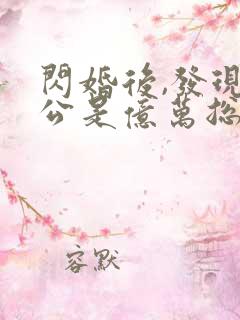 閃婚後,發現
公是億萬總
容默